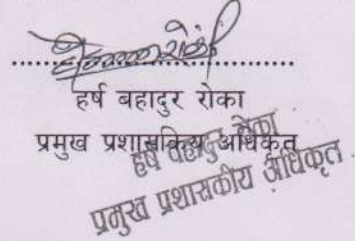 हर्ष बहादुर रोका
प्रमुख प्रशासकिय अधिकृत
हर्ष बहादुर रोका
प्रमुख प्रशासकीय अधिकृत